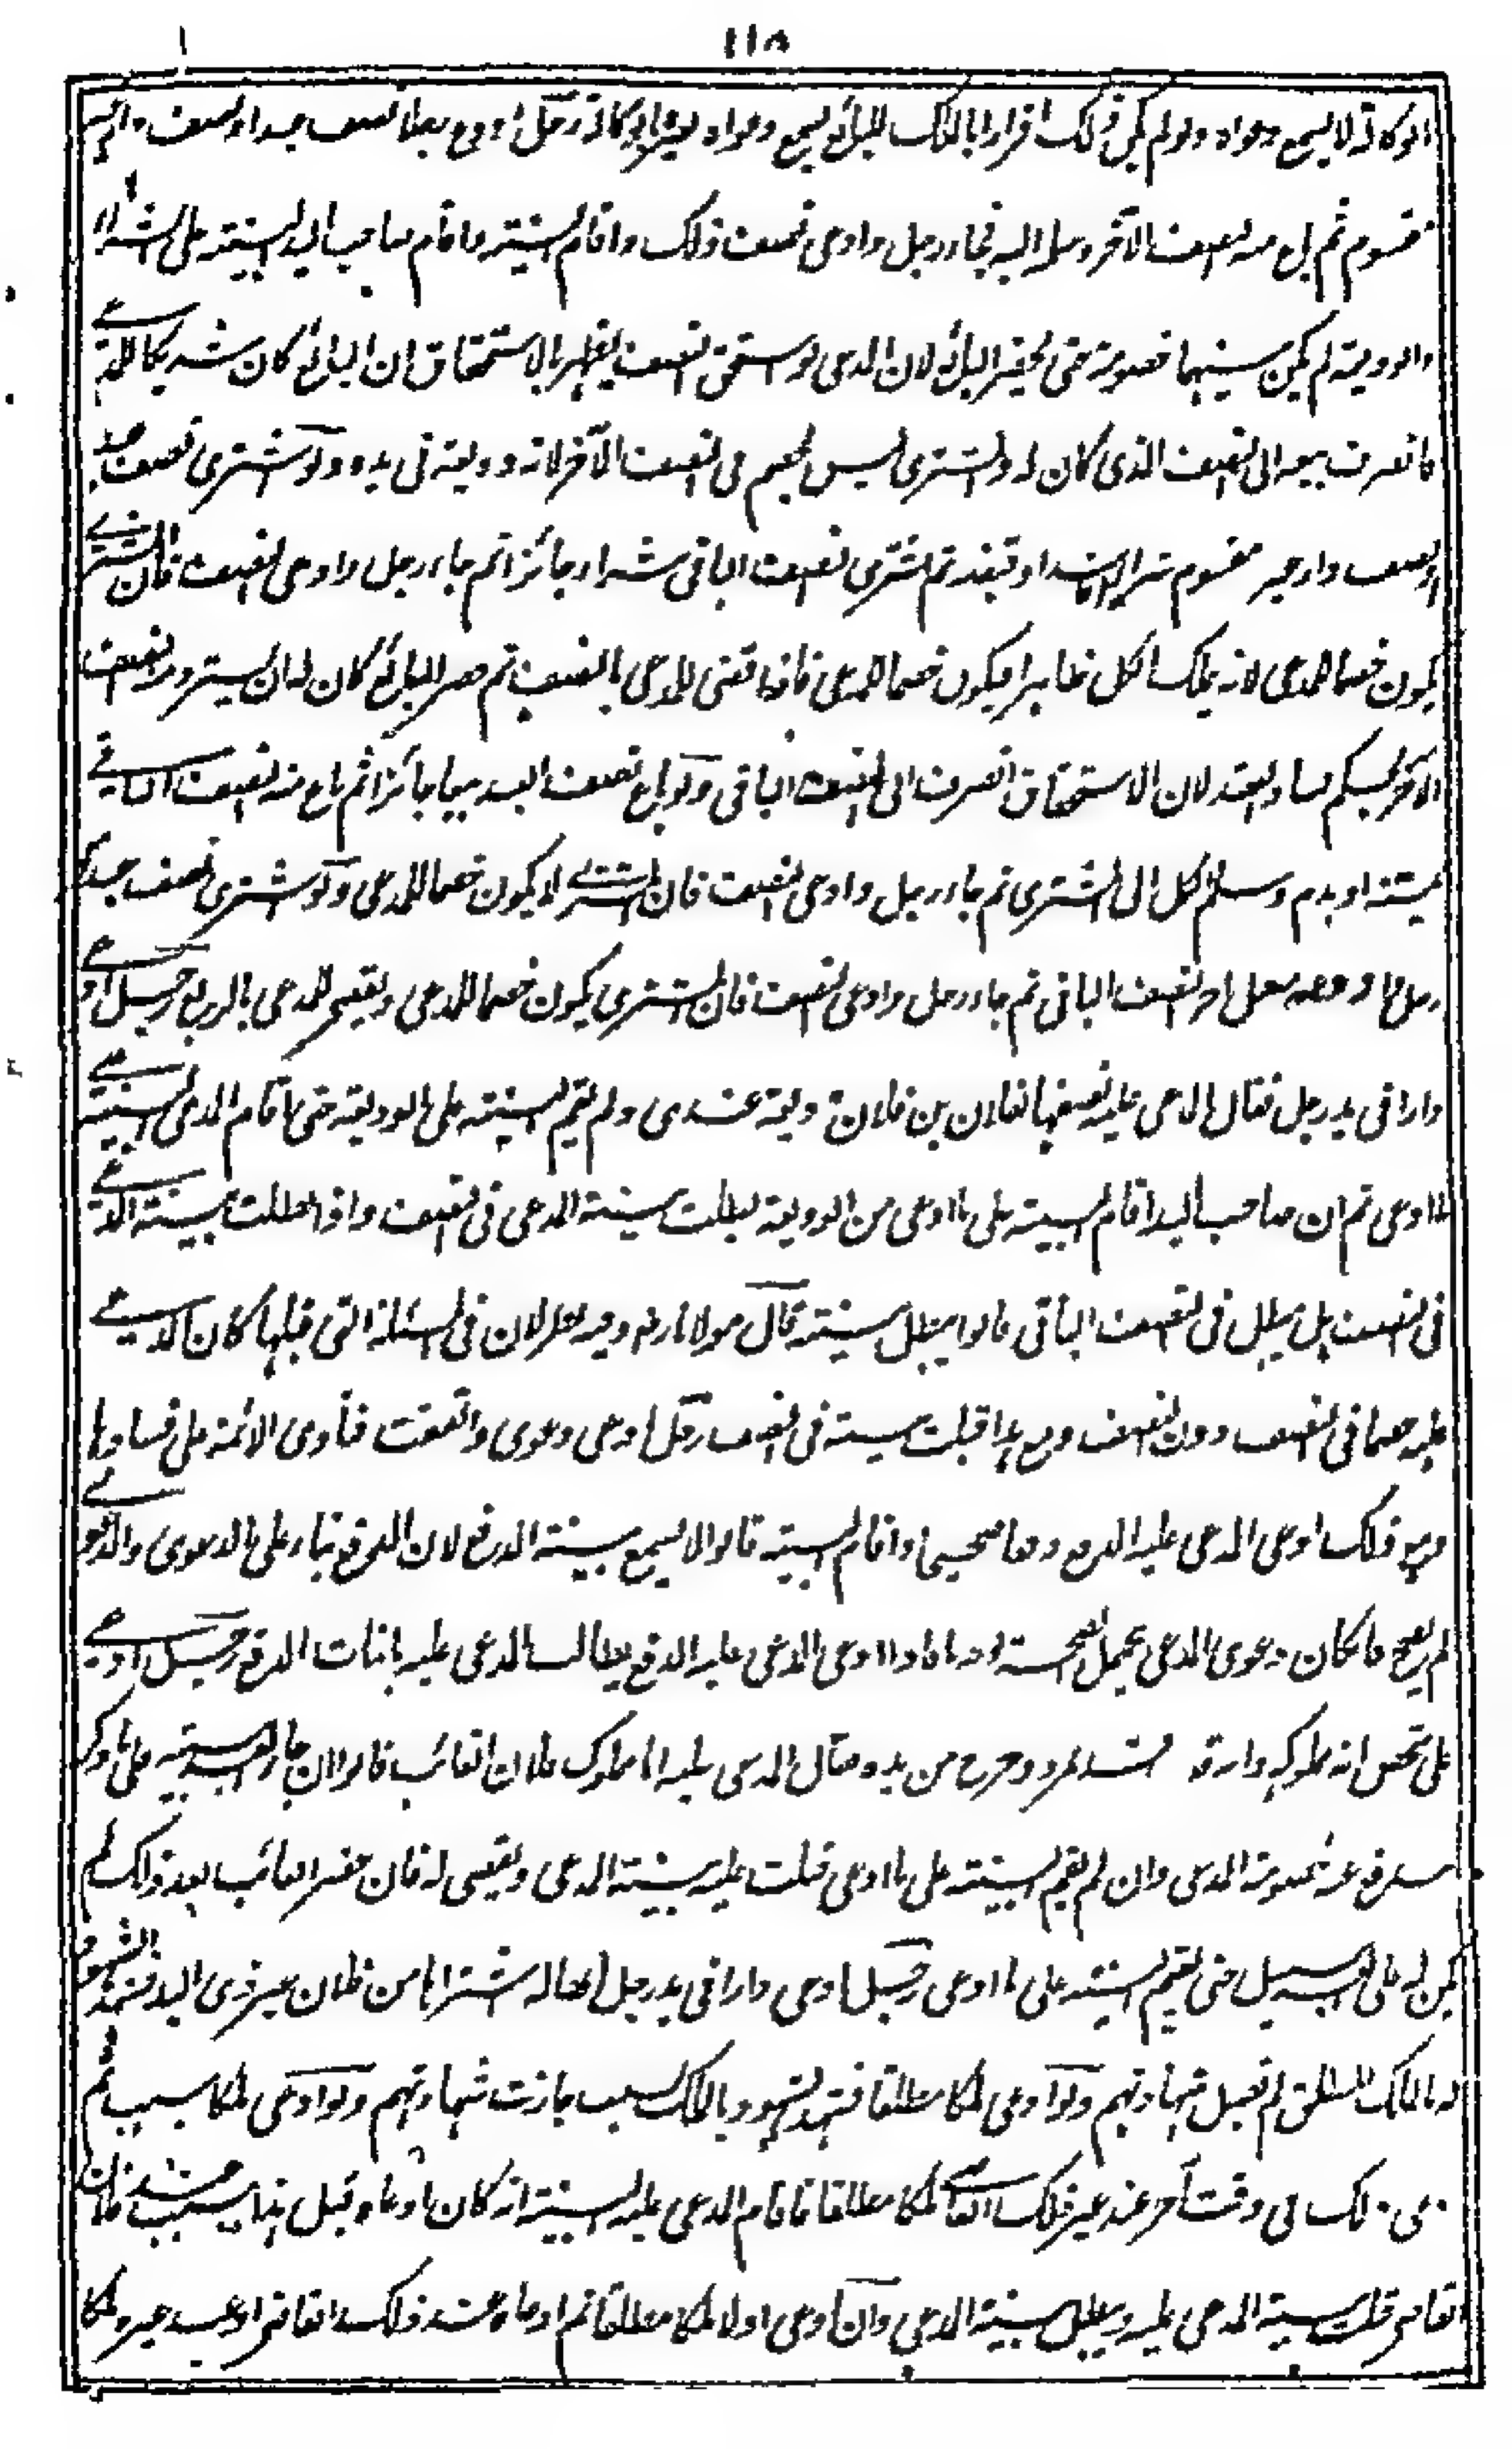 ١١٨
الوكالة لا يسمع دعواه ولو لم يكن ذلك اقرارا بالملك للبائع يسمع دعواه رجل اودع نصف عبد او نصف دار غير
مقسوم ثم باع منه النصف الآخر وسلم اليه فجاء رجل وادعى نصف ذلك واقام البينة واقام صاحب اليد البينة على الشراء
والوديعة لم يكن بينهما خصومة حتى يحضر البائع لان المدعى لو استحق النصف يظهر بالاستحقاق ان البائع كان شريكا للمدعى
فانصرف بيعه الى النصف الذى كان له والمشترى ليس بخصم فى النصف الآخر لانه وديعة فى يده ولو اشترى نصف عبد
او نصف دار غير مقسوم شراء فاسدا وقبضه ثم اشترى النصف الباقى شراء جائزا ثم جاء رجل وادعى النصف فان المشترى
يكون خصما للمدعى لانه يملك الكل ظاهرا فيكون خصما للمدعى فاذا قضى للمدعى بالنصف ثم حضر البائع كان له ان يسترد منه النصف
الآخر بحكم فساد العقد لان الاستحقاق انصرف الى النصف الباقى ولو باع نصف العبد بيعا جائزا ثم باع منه النصف الباقى
بميتة او بدم وسلم الكل الى المشترى ثم جاء رجل وادعى النصف فان المشترى لا يكون خصما للمدعى ولو اشترى نصف عبد
النصف الباقى ثم جاء رجل وادعى النصف فان المشترى يكون خصما للمدعى ويقضى للمدعى بالربع رجل ادعى
دارا فى يد رجل فقال المدعى عليه نصفها لفلان بن فلان وديعة عندى ولم يقم البينة على الوديعة حتى اقام المدعى البينة
لما ادعى ثم ان صاحب اليد اقام البينة على ما ادعى من الوديعة بطلت بينة المدعى فى النصف واذا بطلت بينة المدعى
فى النصف هل يبطل فى النصف الباقى قالوا يبطل بينته قال مولانا رض وفيه نظر لان فى المسئلة التى قبلها كان المدعى
عليه خصما فى النصف دون النصف ومع هذا قبلت بينته فى النصف رجل ادعى دعوى واتفقت فتاوى الائمة على فسادها
ومع ذلك ادعى المدعى عليه الدفع دفعا صحيحا واقام البينة قالوا لا يسمع بينة الدفع لان الدفع بناء على الدعوى والدعوى
لم يصح فان كان دعوى المدعى يحتمل الصحة والفساد وادعى المدعى عليه الدفع يطالب المدعى عليه باثبات الدفع رجل ادعى
على شخص انه مملوكه من يده فقال المدعى عليه انا مملوك فلان الغائب قالوا ان جاء العبد ببينة على ما ذكر
يندفع عنه خصومة المدعى وان لم يقم البينة على ما ادعى قبلت عليه بينة المدعى ويقضى له فان حضر الغائب بعد ذلك لم
يكن له على العبد سبيل حتى يقيم البينة على ما ادعى رجل ادعى دارا فى يد رجل انها له اشتراها من فلان غير ذى اليد فشهد الشهود
له بالملك المطلق لم تقبل شهادتهم ولو ادعى ملكا مطلقا فشهد الشهود بالملك بسبب جازت شهادتهم ولو ادعى ملكا بسبب ثم
ادعى ذلك فى وقت آخر عند غير ذلك القاضى ملكا مطلقا فاقام المدعى عليه البينة انه كان ادعاه قبل هذا بسبب عند فلان
القاضى قبلت بينة المدعى عليه ويبطل بينة المدعى وان ادعى اولا ملكا مطلقا ثم ادعاه عند ذلك القاضى او عند غيره ملكا